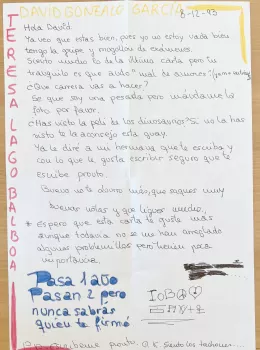 DAVID GONZALO GARCIA
8-12-93
TERESA LAGO BALBOA
Hola David
Ya veo que estas bien, pues yo no estoy nada bien
tengo la gripe y mogollon de exámenes.
Siento mucho lo de la última carta pero tu
tranquilo es que ando "mal de amores"
¿Que carrera vas a hacer?
Se que soy una pesada pero mándame la
foto por favor.
¿Has visto la peli de los dinosaurios? Si no la has
visto te la aconsejo esta guay.
Ya le diré a mi hermana que te escriba y
con lo que le gusta escribir seguro que te
escribe pronto.
Bueno no te aburro más, que saques muy
buenas notas y que ligues mucho.
* espero que esta carta te guste más
aunque todavía no se me han arreglado
algunos problemillos pero tienen poca
importancia.
Pasa 1 año
Pasan 2 pero
nunca sabrás
quien te firmó
escribeme pronto.
P.D. Siento los tachones...